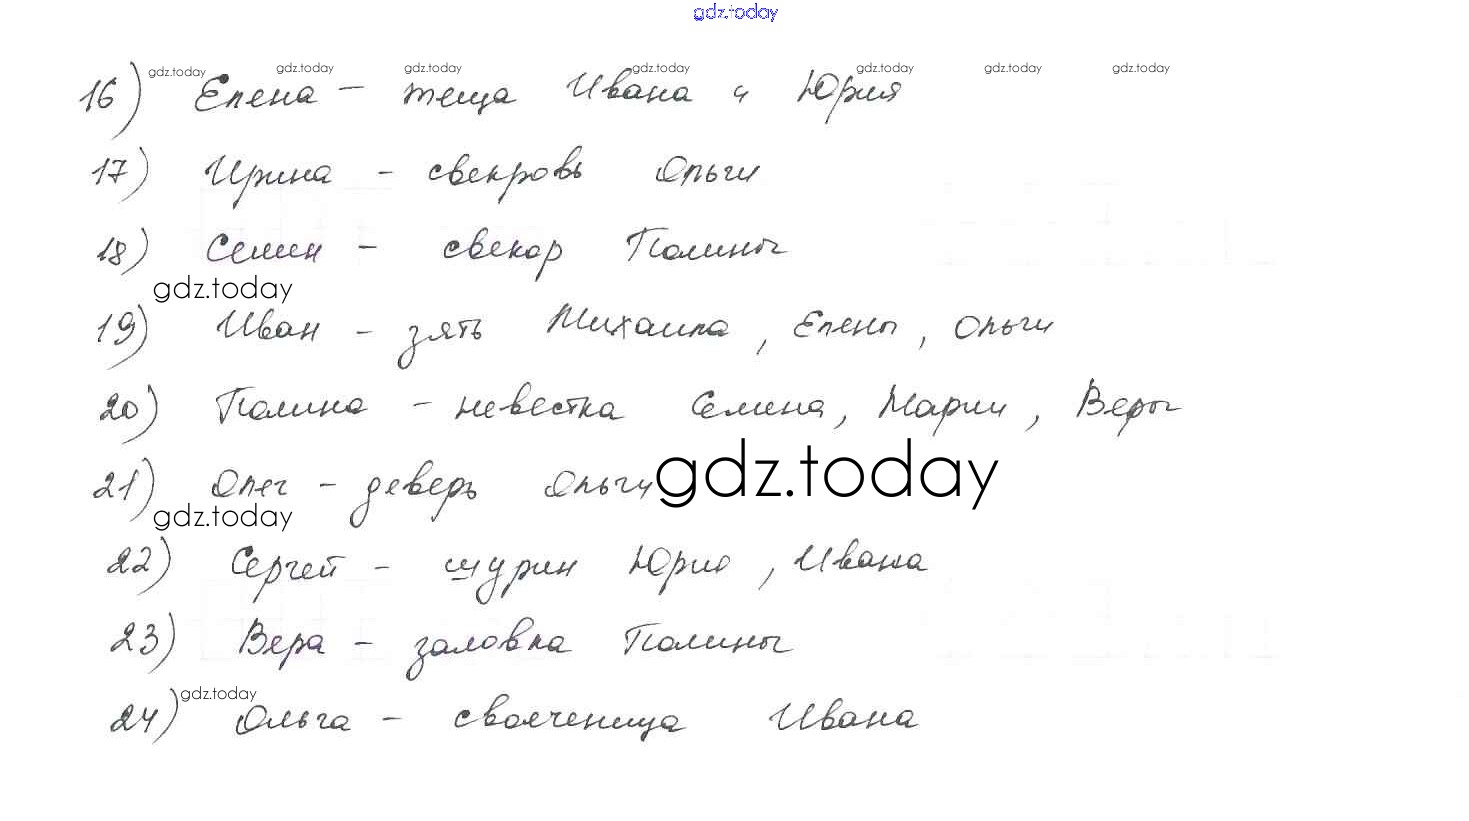 gdz.today
gdz.today gdz.today gdz.today gdz.today gdz.today gdz.today gdz.today
16) Елена - теща Ивана и Юрия
17) Ирина - свекровь Ольги
18) Семен - свекор Полины
gdz.today
19) Иван - зять Михаила, Елены, Ольги
20) Полина - невестка Семена, Марии, Веры
21) Олег - деверь Ольги
gdz.today
gdz.today
22) Сергей - шурин Юрия, Ивана
23) Вера - золовка Полины
gdz.today
24) Ольга - свояченица Ивана